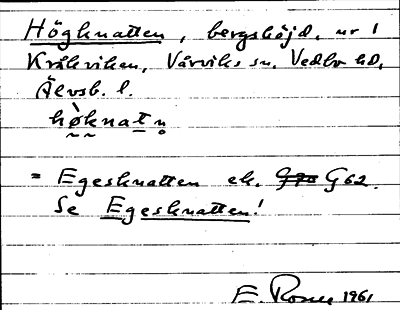 Högknatten, bergshöjd, nr 1
Kråkviken, Vårviks sn, Vedbo hd,
Älvsb. l.
hø̀knatn̥
= Egesknatten ek. G70 G62.
Se Egesknatten!
E. Rosen 1961